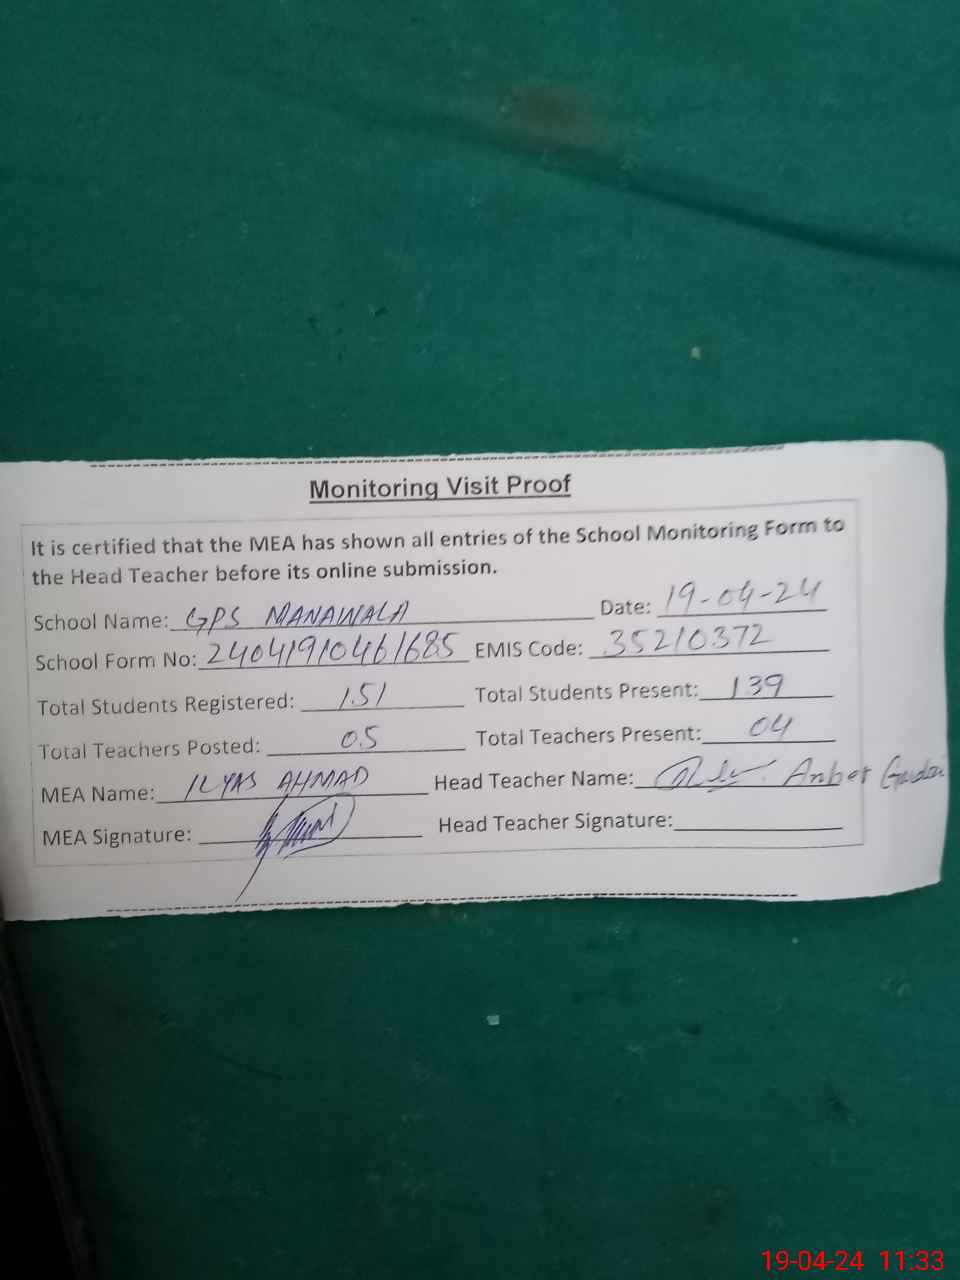 Monitoring Visit Proof
It is certified that the MEA has shown all entries of the School Monitoring Form to
the Head Teacher before its online submission.
School Name: GPS MANAWALA Date: 19-04-24
School Form No: 24041910461685 EMIS Code: 35210372
Total Students Registered: 151 Total Students Present: 139
Total Teachers Posted: 05 Total Teachers Present: 04
MEA Name: ILYAS AHMAD Head Teacher Name: Anber
MEA Signature: Head Teacher Signature:
19-04-24 11:33